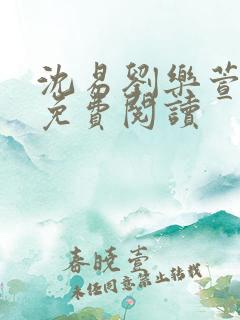 沈易劉樂萱
免費閱讀
春晓萱
未经同意禁止转载